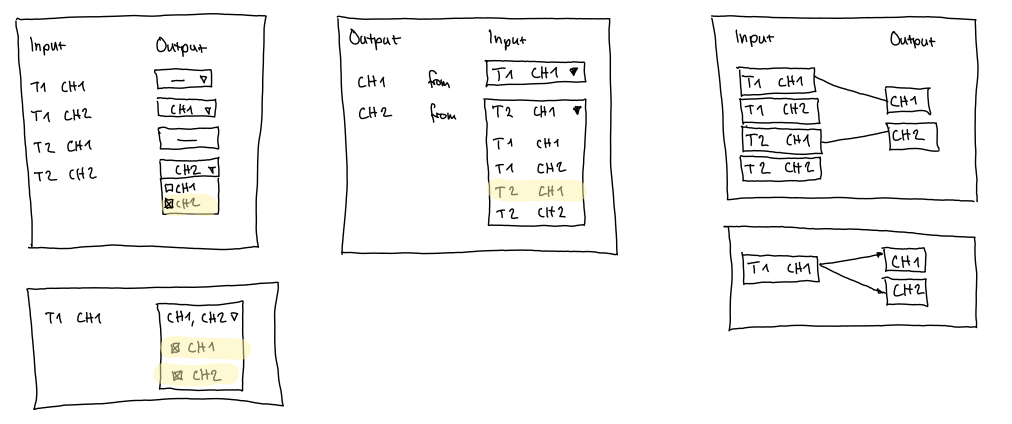 Input Output
T1 CH1 —
T1 CH2 CH1
T2 CH1 —
T2 CH2 CH2
CH1
CH2
T1 CH1 CH1, CH2
CH1
CH2
Output Input
CH1 from T1 CH1
CH2 from T2 CH1
T1 CH1
T1 CH2
T2 CH1
T2 CH2
Input Output
T1 CH1
T1 CH2
T2 CH1
T2 CH2
CH1
CH2
T1 CH1
CH1
CH2